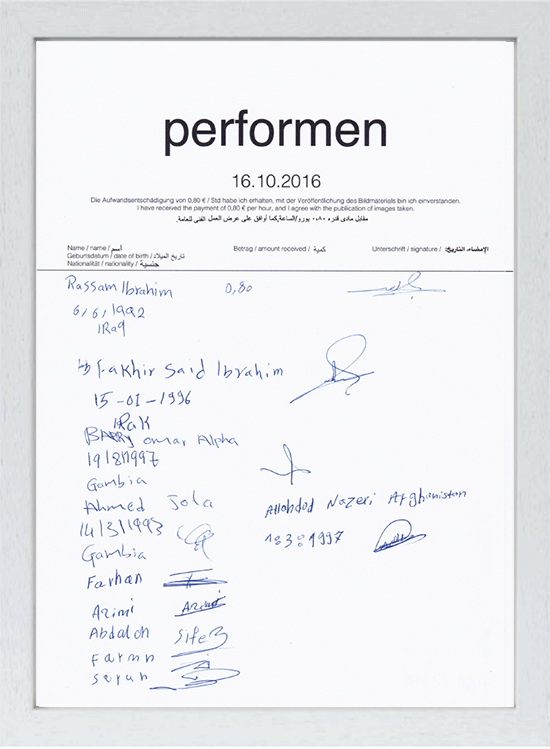 performen
16.10.2016
Die Aufwandsentschädigung von 0,80 € / Std habe ich erhalten, mit der Veröffentlichung des Bildmaterials bin ich einverstanden.
I have received the payment of 0,80 € per hour, and I agree with the publication of images taken.
مقابل مادى قدره ٠،٨٠ يورو/الساعة.كما أوافق على عرض العمل الفني للعامة.
Name / name / أسم
Geburtsdatum / date of birth / تاريخ الميلاد
Nationalität / nationality / جنسية
Betrag / amount received / كمية
Unterschrift / signature / الإمضاء، التاريخ:
Rassam Ibrahim 0,80
6/6/1992
IRaq
Fakhir Said Ibrahim
15-01-1996
IRaK
BARRY omar Alpha
19/8/1997
Gambia
Ahmed Jola
14/3/1993
Gambia
Allahdad Nazeri Afghanistan
18:3:1997
Farhan
Azimi Azimi
Abdalah
Farmn